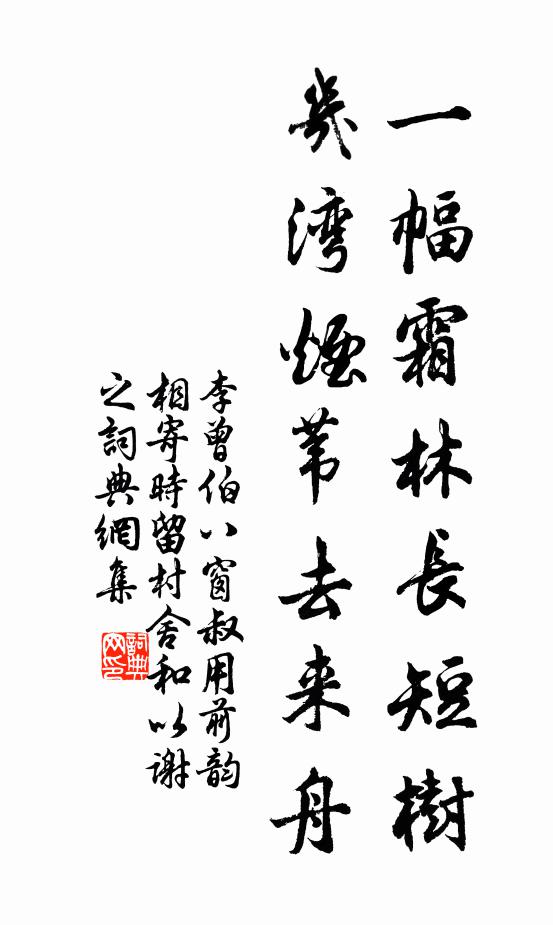 一幅霜林長短樹
幾湾煙苇去来舟
李曾伯八窗叔用前韵
相寄時留村舍和以謝
之詞典網集
詞典
网印